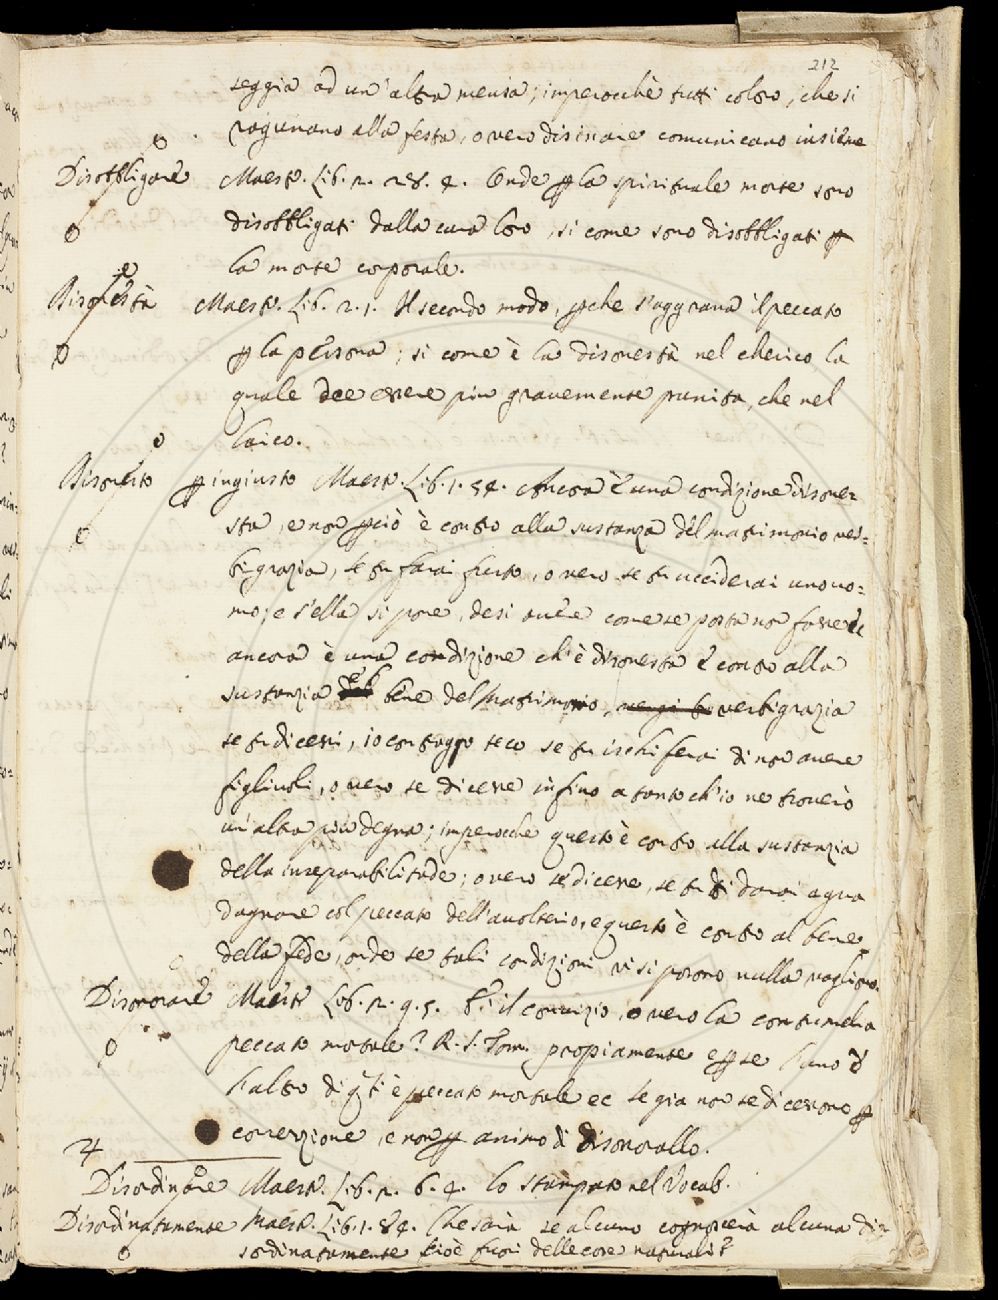 212
seggia ad un'altra mensa; imperocchè tutti coloro, che si
ragunano alla festa, overo disinare comunicano insieme
Disobbligare Maestr. Lib. 2. 28. 4. Onde p la spirituale morte sono
disobbligati dalla cura loro, si come sono disobbligati p
la morte corporale.
Disonestà Maestr. Lib. 2. 1. Il secondo modo, pche s'aggrava il peccato
p la persona; si come è la disonestà nel cherico, la
quale dee essere piu gravemente punita, che nel
laico.
Disonesto p ingiusto Maestr. Lib. 1. 54. Ancora è una condizione disone-
sta, e non pciò è contro alla sustanza del matrimonio ver-
bigrazia, se tu farai furto, o vero se tu ucciderai uno uo=
mo; e s'ella si pone, desi avere come se posta non fosse e
ancora è una condizione ch'è disonesta e contro alla
sustanzia bene del Matrimonio, verbigrazia
se tu dicessi, io contraggo teco se tu ischiferai di non avere
figliuoli, overo se dicesse infino a tanto ch'io ne troverò
un'altra più degna; imperocche questo è contro alla sustanzia
della inseparabilitade; overo se dicesse, se tu ti darai a gua
dagnare col peccato dell'avolterio, e questo è contro al bene
della Fede, onde se tali condizioni vi si pongono nulla vagliono.
Disonorare Maestr Lib. 2. 9. 5. S'il convizio, overo la contumelia
peccato mortale? R. S. Tom. propiamente e p se l'uno e
l'altro di qti è peccato mortale ec se gia non se dicessono p
correzione, e non p animo di disonorallo.
Disordinare Maestr. Lib. 2. 6. 4. lo stampato nel Vocab.
Disordinatamente Maestr. Lib. 1. 84. Che sarà se alcuno cognoscerà alcuna di-
sordinatamente cioè fuori delle cose naturali?